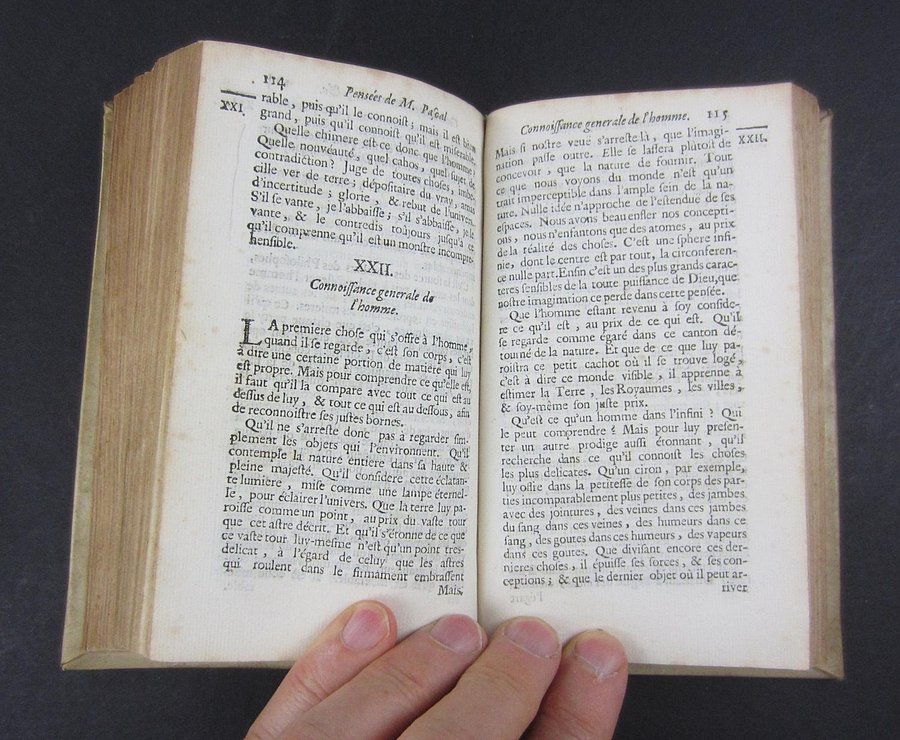 114 Pensées de M. Pascal
XXI.
rable, puis qu'il le connoist; mais il est bien
grand, puis qu'il connoist qu'il est miserable.
Quelle chimere est-ce donc que l'homme?
Quelle nouveauté, quel cahos, quel sujet de
contradiction? Juge de toutes choses, imbe-
cille ver de terre; dépositaire du vray, amas
d'incertitude; gloire, & rebut de l'univers.
S'il se vante, je l'abbaisse; s'il s'abbaisse, je le
vante, & le contredis toûjours jusqu'à ce
qu'il comprenne qu'il est un monstre incompre-
hensible.
XXII.
Connoissance generale de
l'homme.
LA premiere chose qui s'offre à l'homme,
quand il se regarde, c'est son corps, c'est
à dire une certaine portion de matiere qui luy
est propre. Mais pour comprendre ce qu'elle est,
il faut qu'il la compare avec tout ce qui est au
dessus de luy, & tout ce qui est au dessous, afin
de reconnoistre ses justes bornes.
Qu'il ne s'arreste donc pas à regarder sim-
plement les objets qui l'environnent. Qu'il
contemple la nature entiere dans sa haute &
pleine majesté. Qu'il considere cette éclatan-
te lumiere, mise comme une lampe éternel-
le, pour éclairer l'univers. Que la terre luy pa-
roisse comme un point, au prix du vaste tour
que cet astre décrit. Et qu'il s'étonne de ce que
ce vaste tour luy-mesme n'est qu'un point tres-
delicat, à l'égard de celuy que les astres
qui roulent dans le firmament embrassent
Mais.
Connoissance generale de l'homme. 115
XXII.
Mais si nostre veuë s'arreste là, que l'imagi-
nation passe outre. Elle se lassera plutost de
concevoir, que la nature de fournir. Tout
ce que nous voyons du monde n'est qu'un
trait imperceptible dans l'ample sein de la na-
ture. Nulle idée n'approche de l'estenduë de ses
espaces. Nous avons beau enfler nos concepti-
ons, nous n'enfantons que des atomes, au prix
de la réalité des choses. C'est une sphere infi-
nie, dont le centre est par tout, la circonferen-
ce nulle part. Enfin c'est un des plus grands carac-
teres sensibles de la toute puissance de Dieu, que
nostre imagination ce perde dans cette pensée.
Que l'homme estant revenu à soy conside-
re ce qu'il est, au prix de ce qui est. Qu'il
se regarde comme égaré dans ce canton dé-
tourné de la nature. Et que de ce que luy pa-
roistra ce petit cachot où il se trouve logé,
c'est à dire ce monde visible, il apprenne à
estimer la Terre, les Royaumes, les villes,
& soy-même son juste prix.
Qu'est ce qu'un homme dans l'infini? Qui
le peut comprendre? Mais pour luy presen-
ter un autre prodige aussi étonnant, qu'il
recherche dans ce qu'il connoist les choses
les plus delicates. Qu'un ciron, par exemple,
luy offre dans la petitesse de son corps des par-
ties incomparablement plus petites, des jambes
avec des jointures, des veines dans ces jambes
du sang dans ces veines, des humeurs dans ce
sang, des goutes dans ces humeurs, des vapeurs
dans ces goutes. Que divisant encore ces der-
nieres choses, il épuise ses forces, & ses con-
ceptions; & que le dernier objet où il peut ar-
river